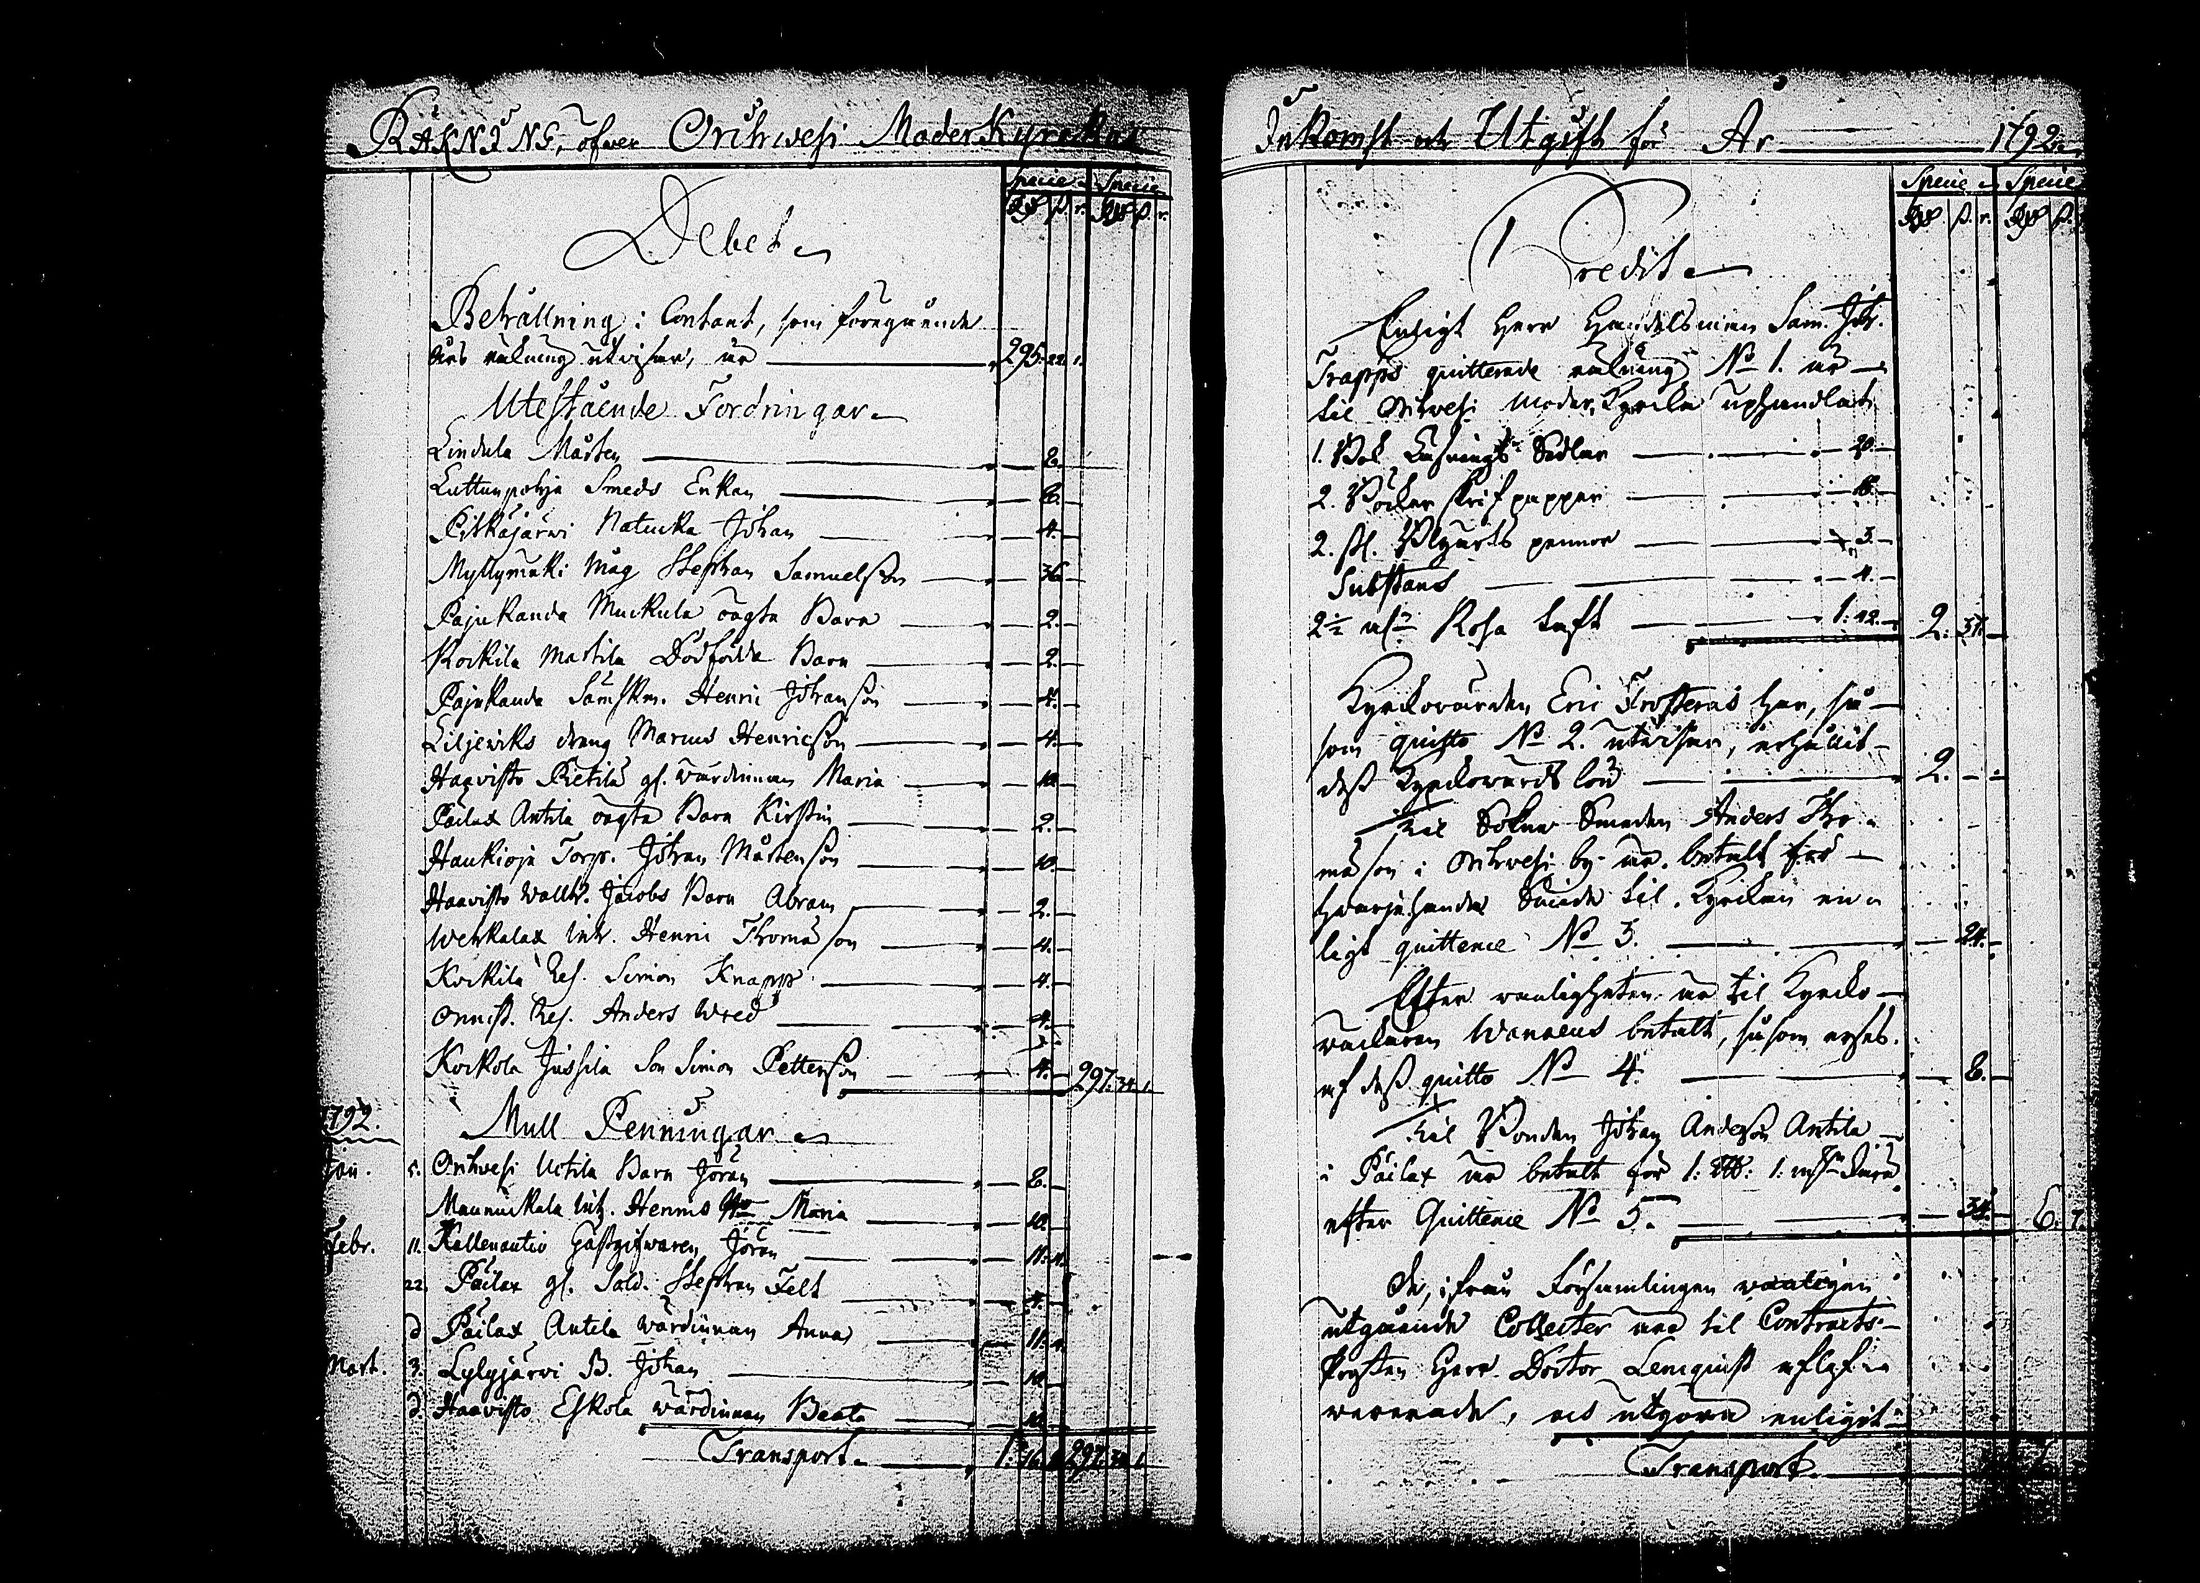 RÄKNING, öfver Orihwesi Moder Kyrckas
Specie Specie
Rd ß. r. Rd ß. r.
Debet
Behållning: Contant, som föregående
års räkning utvisar, är 295. 22. 1.
Utestående Fordringar
Lindula Mårten 2.
Luttunpohja Smeds Enkan 8.
Pitkäjärwi Natucka Johan 4.
Myllymäki Måg Stephan Samuelsson 36
Pajukanda Muckula oägta Barn 2.
Kockila Martila Dödfödda Barn 2.
Pajukanda Sämskm. Henric Johansson 4.
Liljewiks dräng Marcus Henricsson 4.
Haavisto Pietilä gl. wärdinnan Maria 10.
Päilax Antila oägta Barn Kirstin 2.
Haukioja Torp. Johan Mårtensson 10.
Haavisto Wallb. Jacobs Barn Abram 2.
Wehkalax Inh. Henric Thomasson 4.
Kockila Res. Simon Knapp 4.
Onnist. Res. Anders Wred 4.
Kockola Jussila Son Simon Pettersson 4. 297. 34. 1.
1792. Mull Penningar
Jan. 5. Orihwesi Uotila Barn Jöran 8.
Maunuckala Inh. Henrics Maria 10.
Febr. 11. Kallenautio Gästgifwaren Jöran 11. 4.
22. Päilax gl. Sold. Stephan Felt 4.
d Päilax Antila wärdinnan Anna 11. 4.
Mart. 3. Lylyjärvi B. Johan 10.
d. Haavisto Eskola wärdinnan Beata
Transport 1. 297. 34. 1.
Inkomst och Utgift för År 1792.
Specie Specie
Rd ß. r. Rd ß.
Credit
Enligt Herr Handelsman Sam. Joh.
Trapps quitterade räkning No 1. är
til Orihwesi Moder Kyrcka uphandlat
1. Bok Sedlar 20.
2. Böcker skrif papper
2. st. pennor 3.
Substans 4.
2 1/2 Rosa taft 1: 12. 2:
Kyrckovärden Eric Frosterus har, så
som quitto No 2. utvisar, erhållit
dess Kyrckowärds lön 2.
Til Sokne Smeden Anders Tho
masson i Orihwesi by är betalt för
hvarjehanda Smide til Kyrckan en
ligt quittence No 3. 24.
Efter wanligheten är til Kyrcko
väcktaren Wanaeus betalt, såsom erses
af dess quitto No 4. 8.
Til Bonden Johan Andersson Antila
i Päilax är betalt för 1.
efter Quittence No 5. 34. 6. 7.
De, ifrån Församlingen wanligen
utgående Collecter äro til Contracts
Prosten Herr Doctor Lencquist aflef
wererade, och utgöra enligit
Transport